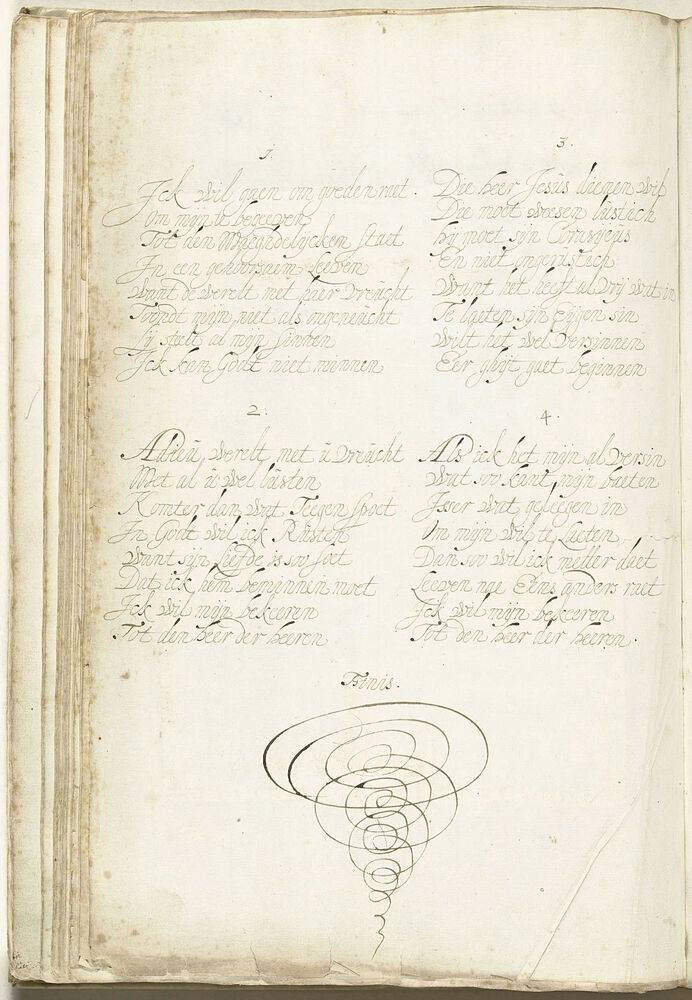 1.
Ick wil gaen om goeden raet.
Om mijn te begeeven
Tot den Maegdelycken staet
In een gehoorsaem Leeven
Want de werelt met haer vreucht
Vondt mijn niet als ongeneucht
Sij stelt al mijn sinnen
Ick kan Godt niet minnen
2.
Adieu werelt met u vreucht
Met al u wel lusten
Komter dan wat Teegen spoet
In Godt wil ick Rusten
Want sijn Liefde is soo soet
Dat ick hem beminnen moet
Ick wil mijn bekeeren
Tot den heer der heeren
3.
Die heer Jesus dienen wil
Die moet weesen lustich
hij moet sijn Corasijeus
En niet ongerustich
Want het heeft al vrij wat in
Te laeten sijn Eijgen sin
Wilt het wel versinnen
Eer ghijt gaet beginnen
4.
Als ick het mijn al versin
Wat soo kant mijn baeten
Isser wat geleegen in
Om mijn wil te Laeten
Dan soo wil ick metter daet
Leeven nae Eens anders raet
Ick wil mijn bekeeren
Tot den heer der heeren.
Finis.